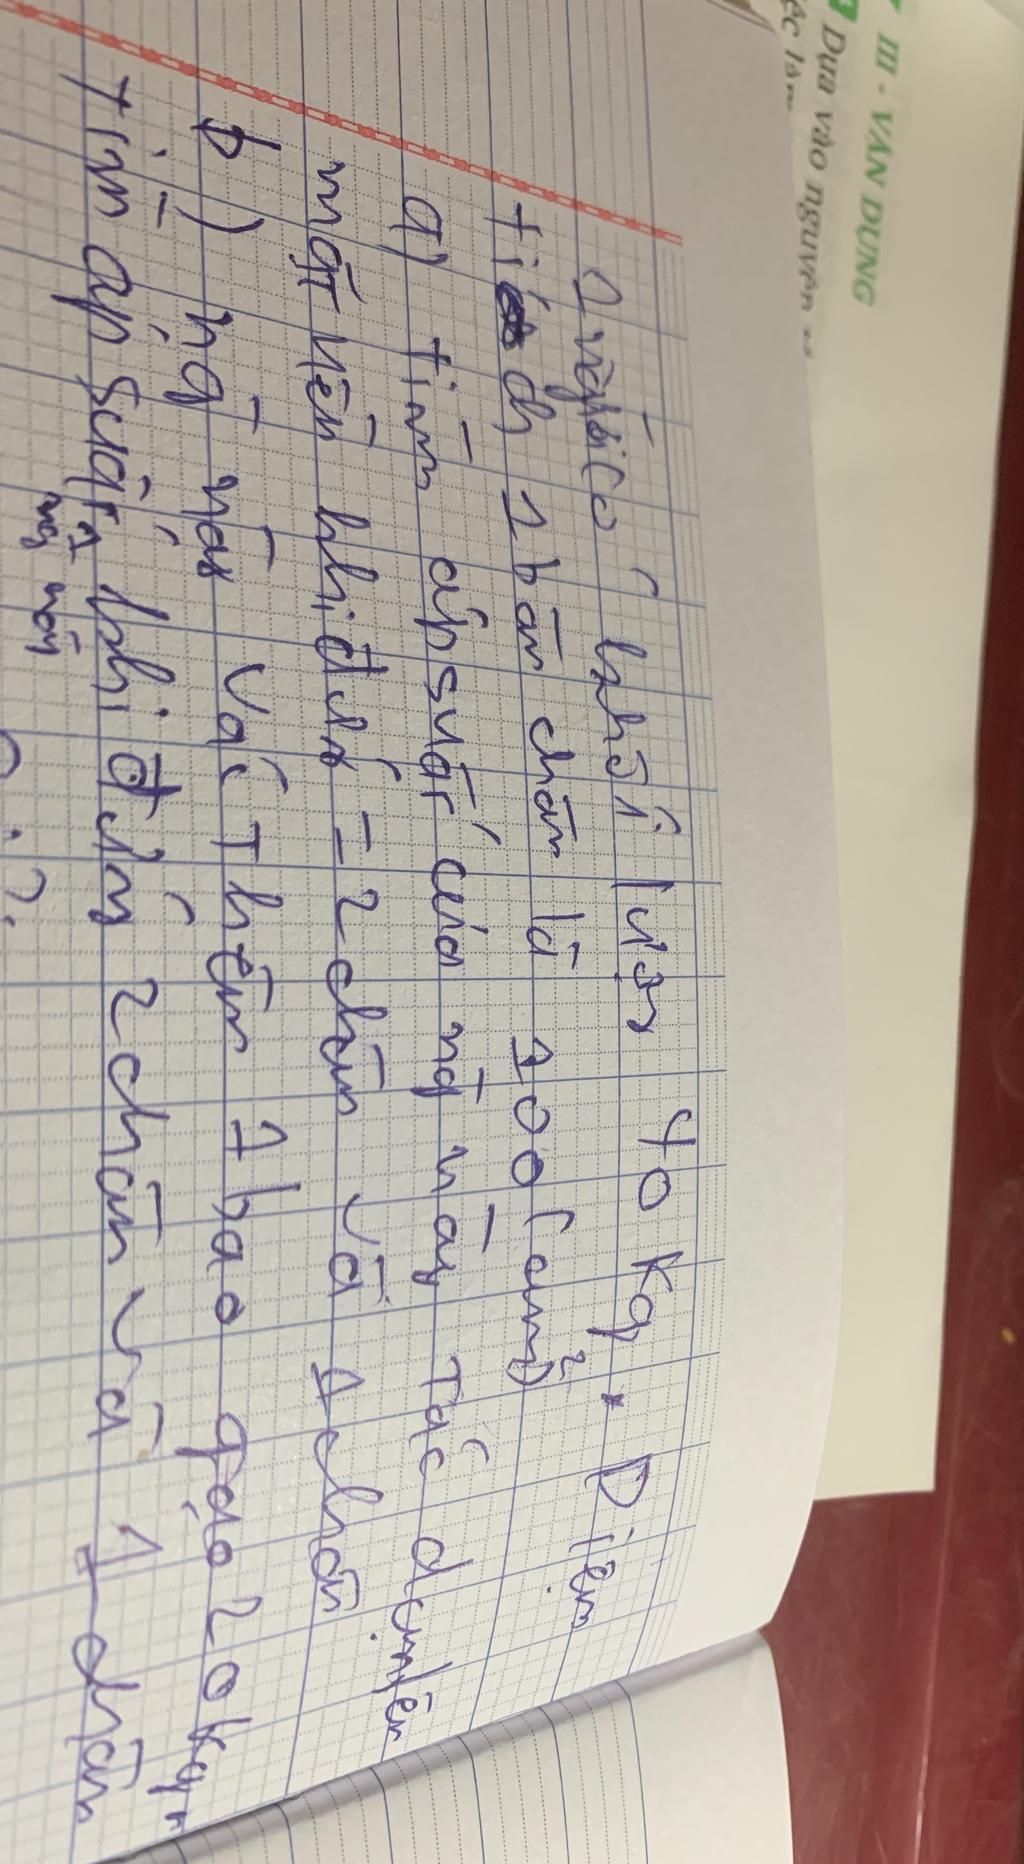 III - VẬN DỤNG
Dựa vào nguyên
1 người có khối lượn 40 kg. Diện
tích 1 bàn chân là 100 (cm)²
a) tìm áp suất của ng này tác dụng lên
mặt nền khi đứng = 2 chân và 1 chân
b) ng này vác thêm 1 bao gạo 20 kg,
tìm áp suất khi đứng 2 chân và 1 chân
ng này
?